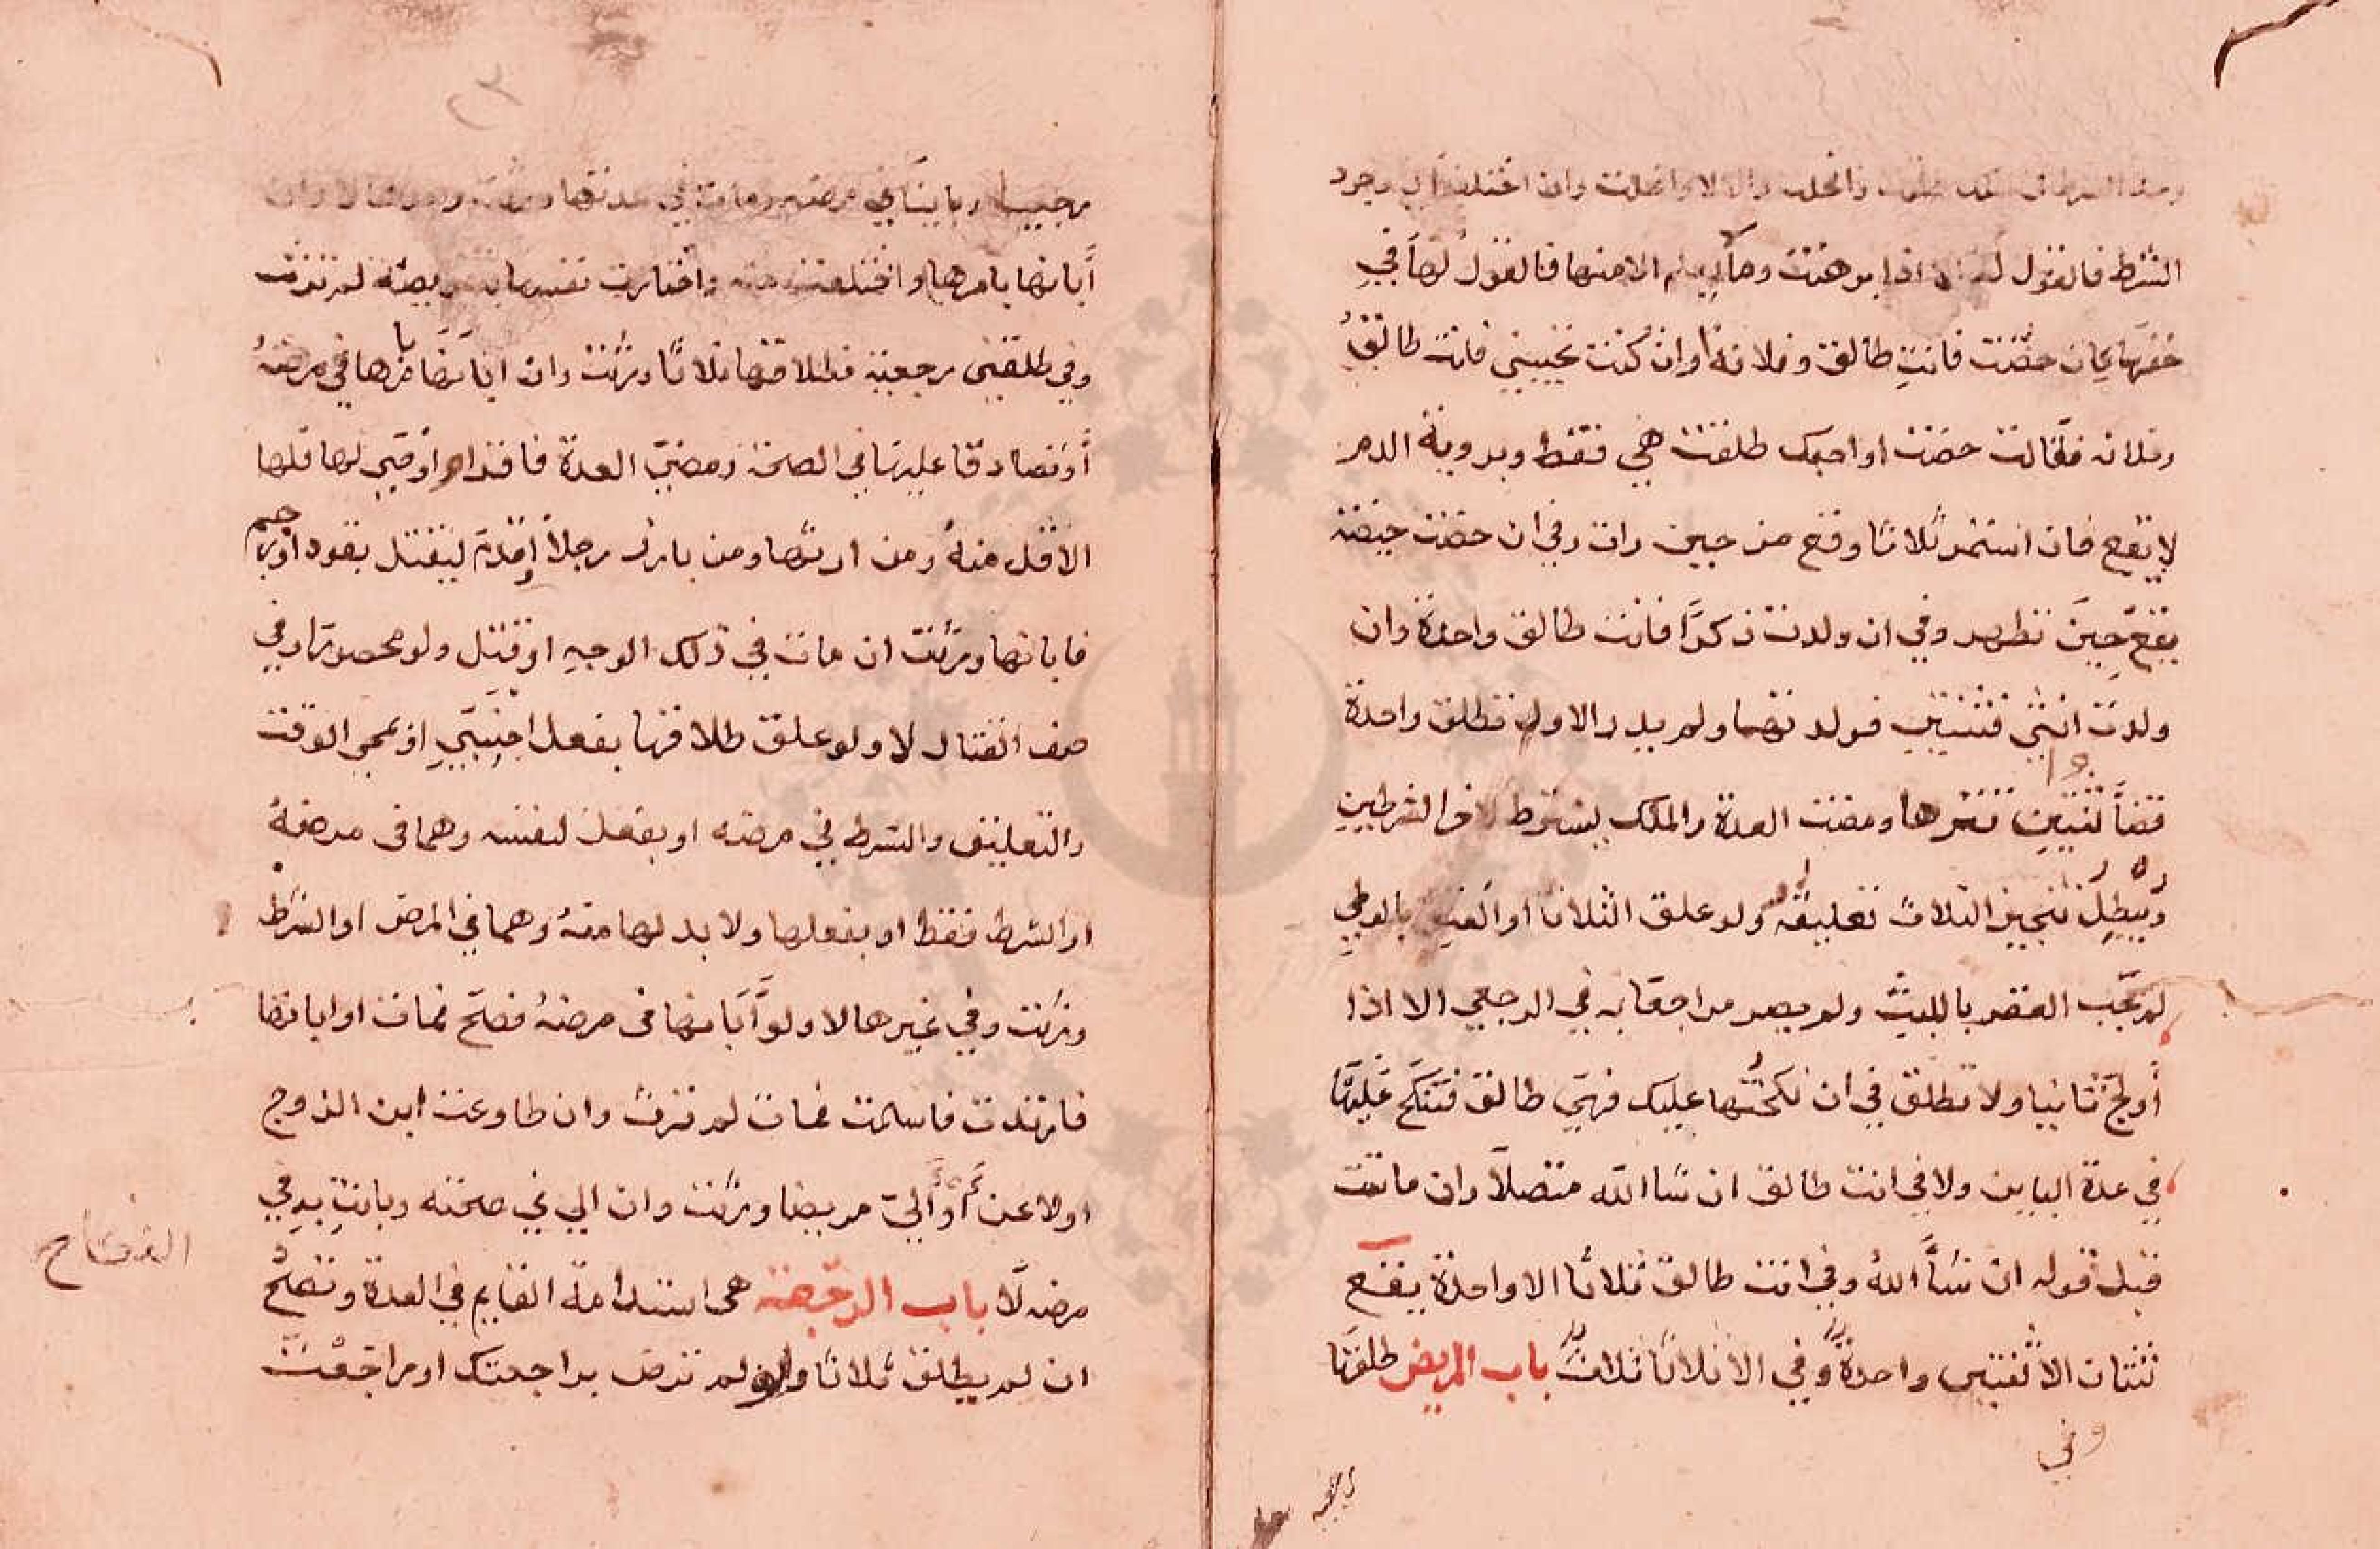 وجد الشرط في ملكه طلقت وانحلت والا لا وانحلت وان اختلفا في وجود
الشرط فالقول له الا اذا برهنت وما لا يعلم الا منها فالقول لها في
حقها كان حضت فانت طالق وفلانة اوان كنت تحبيني فانت طالق
وفلانه فقالت حضت او احبك طلقت هي فقط وبروية الدم
لا يقع فان استمر ثلاثا وقع من حين رات وفي ان حضت حيضة
يقع حين تطهر وفي ان ولدت ذكرا فانت طالق واحدة وان
ولدت انثي فثنتين فولدتهما ولم يدر الاول تطلق واحدة
قضا وثنتين تنزها ومضت العدة والملك يشترط لاخر الشرطين
ويبطل تنجيز الثلاث تعليقه ولو علق الثلاثا او العتق بالوطي
لم يجب العقر باللبث ولم يصر مراجعا به في الرجعي الا اذا
أولج ثانيا ولا تطلق في ان نكحتها عليك فهي طالق فنكح عليها
في عدة الباين ولا في انت طالق ان شا الله متصلا وان ماتت
قبل قوله ان شا الله وفي انت طالق ثلاثا الا واحدة يقع
ثنتان وفي الا ثنتين واحدة وفي الا ثلاثا ثلاث باب المريض طلقها
رجعيا او باينا في مرضه ومات في عدتها ورثت وبعدها لا وان
أبانها بامرها او اختلعت منه او اختارت نفسها بتفويضه لم ترث
وفي طلقني رجعية فطلقها ثلاثا ورثت وان ابانها بامرها في مرضه
أو تصادقا عليها في الصحة ومضي العدة فاقر او اوصي لها فلها
الاقل منه ومن ارثها ومن بارز رجلا او قدم ليقتل بقود او رجم
فابانها ورثت ان مات في ذلك الوجه او قتل ولو محصورا او في
صف القتال لا ولو علق طلاقها بفعل اجنبي او بمجي الوقت
والتعليق والشرط في مرضه او بفعل نفسه وهما في مرضه
او الشرط فقط او بفعلها ولا بد لها منه وهما في المرض او الشرط
ورثت وفي غيرها لا ولو أبانها في مرضه فصح فمات او ابانها
فارتدت فاسلمت فمات لم ترث وان طاوعت ابن الزوج
او لاعن أو ألي مريضا ورثت وان الي في صحته وبانت به في
مرضه لا باب الرجعة هي استدامة القايم في العدة وتصح
ان لم يطلق ثلاثا ولو لم ترض براجعتك او راجعت